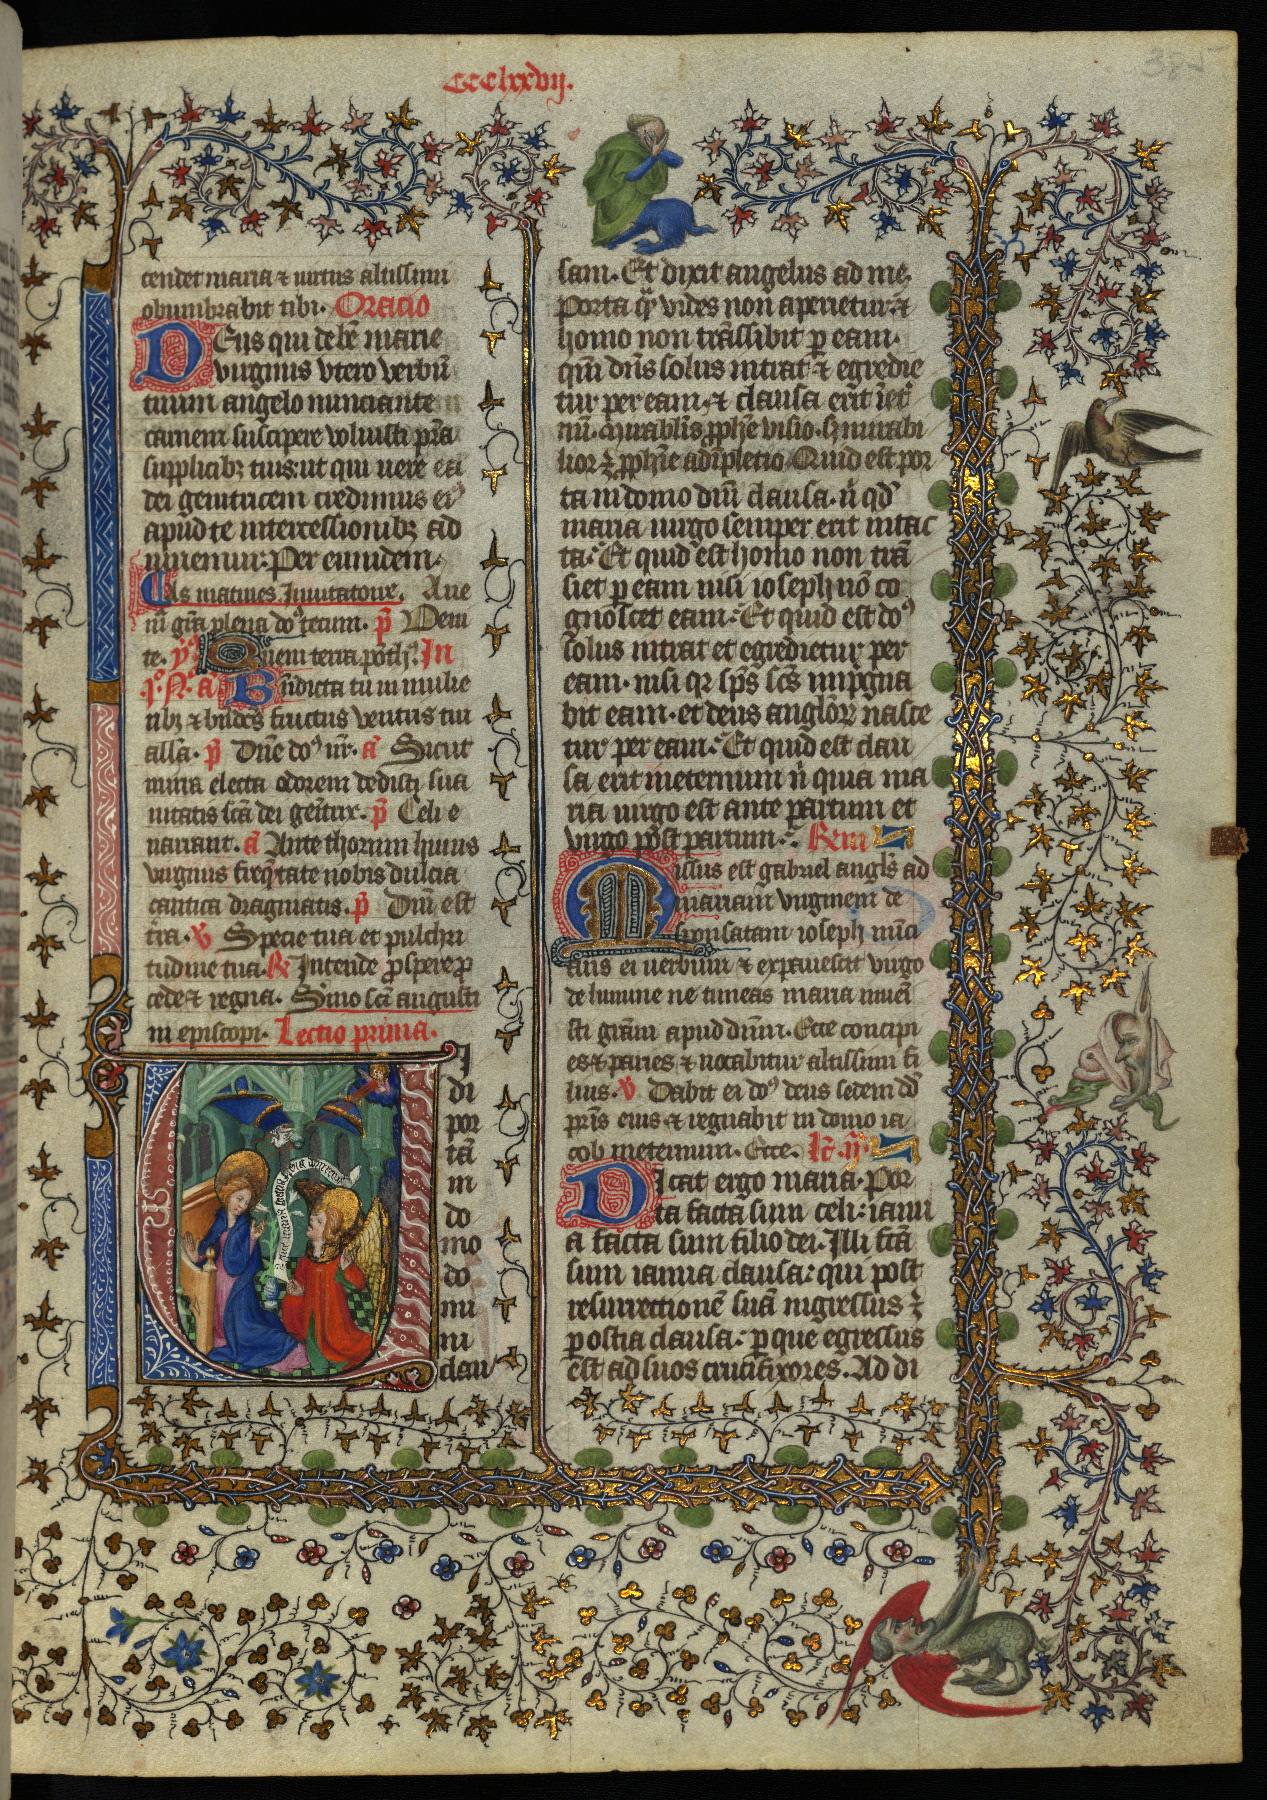 CCClxxvij.
cendet maria ⁊ uirtus altissimi
obumbrabit tibi. Oracio
DEus qui de bẽ marie
uirginis vtero verbũ
tuum angelo nunciante
carnem suscipere voluisti p̃sta
supplicibꝫ tuis: ut qui uere eã
dei genitricem credimus eiꝰ
apud te intercessionibꝫ ad
iuuemur. Per eumdem.
As matines Inuitatoire. Aue
m̃ gr̃a plena doꝰ tecum. p̃ Veni
te. ỹ Quem terra pont
In
j.º N.º a Bñdicta tu in mulie
ribꝫ ⁊ bñdcs fructus ventris tui
all̃a. p̃ Dñe doꝰ nr̃. a Sicut
mirra electa odorem dedisti sua
uitatis sc̃a dei geñtrix. p̃ Celi e
narrant. a Ante thorum huius
virginis freq̃tate nobis dulcia
cantica dragmatis. p̃ Dm̃ est
tr̃a. v Specie tua et pulchri
tudine tua. R Intende prospere p
cede ⁊ regna. Smo sc̃i augusti
ni episcopi. Lectio prima.
I
di
por
tã
in
do
mo
do
mi
ni
clau
sam. Et dixit angelus ad me.
Porta q̃ vides non aperietur: ⁊
homo non trãssibit p eam.
qm̃ dñs solus intrat ⁊ egredie
tur per eam, ⁊ clausa erit iet̾
nũ. Mirabilis pph̃e visio. Sz mirabi
lior ē pph̃ie adĩpletio. Quid est por
ta in domo dñi clausa. ñ qd̾
maria uirgo semper erit intac
ta? Et quid est homo non trã
siet p eam nisi ioseph nõ co
gnoscet eam? Et quid est doꝰ
solus intrat et egredietur per
eam. nisi qr sp̃s sc̃s inp̃gna
bit eam. et deus anglõꝝ nasce
tur per eam? Et quid est clau
sa erit ineternum ñ quia ma
ria uirgo est ante partum et
uirgo post partum.
Missus est gabriel angl̃s ad
mariam virginem de
sponsatam ioseph nũci
ans ei uerbum ⁊ expauescit virgo
de lumine ne timeas maria inueni
sti gr̃am apud dñm. Ecce concipi
es ⁊ paries ⁊ uocabitur altissimi fi
lius. v Dabit ei doꝰ deus sedem dd̃
pr̃is eius ⁊ regnabit in domo ia
cob ineternum. Ecce. Lc̃. ij.
DIcat ergo maria. Por
ta facta sum celi: ianu
a facta sum filio dei. Illi fc̃a
sum ianua clausa: qui post
resurrectionẽ suã ingressus ē
p ostia clausa: p que egressus
est ad suos crucifixores. Ad di